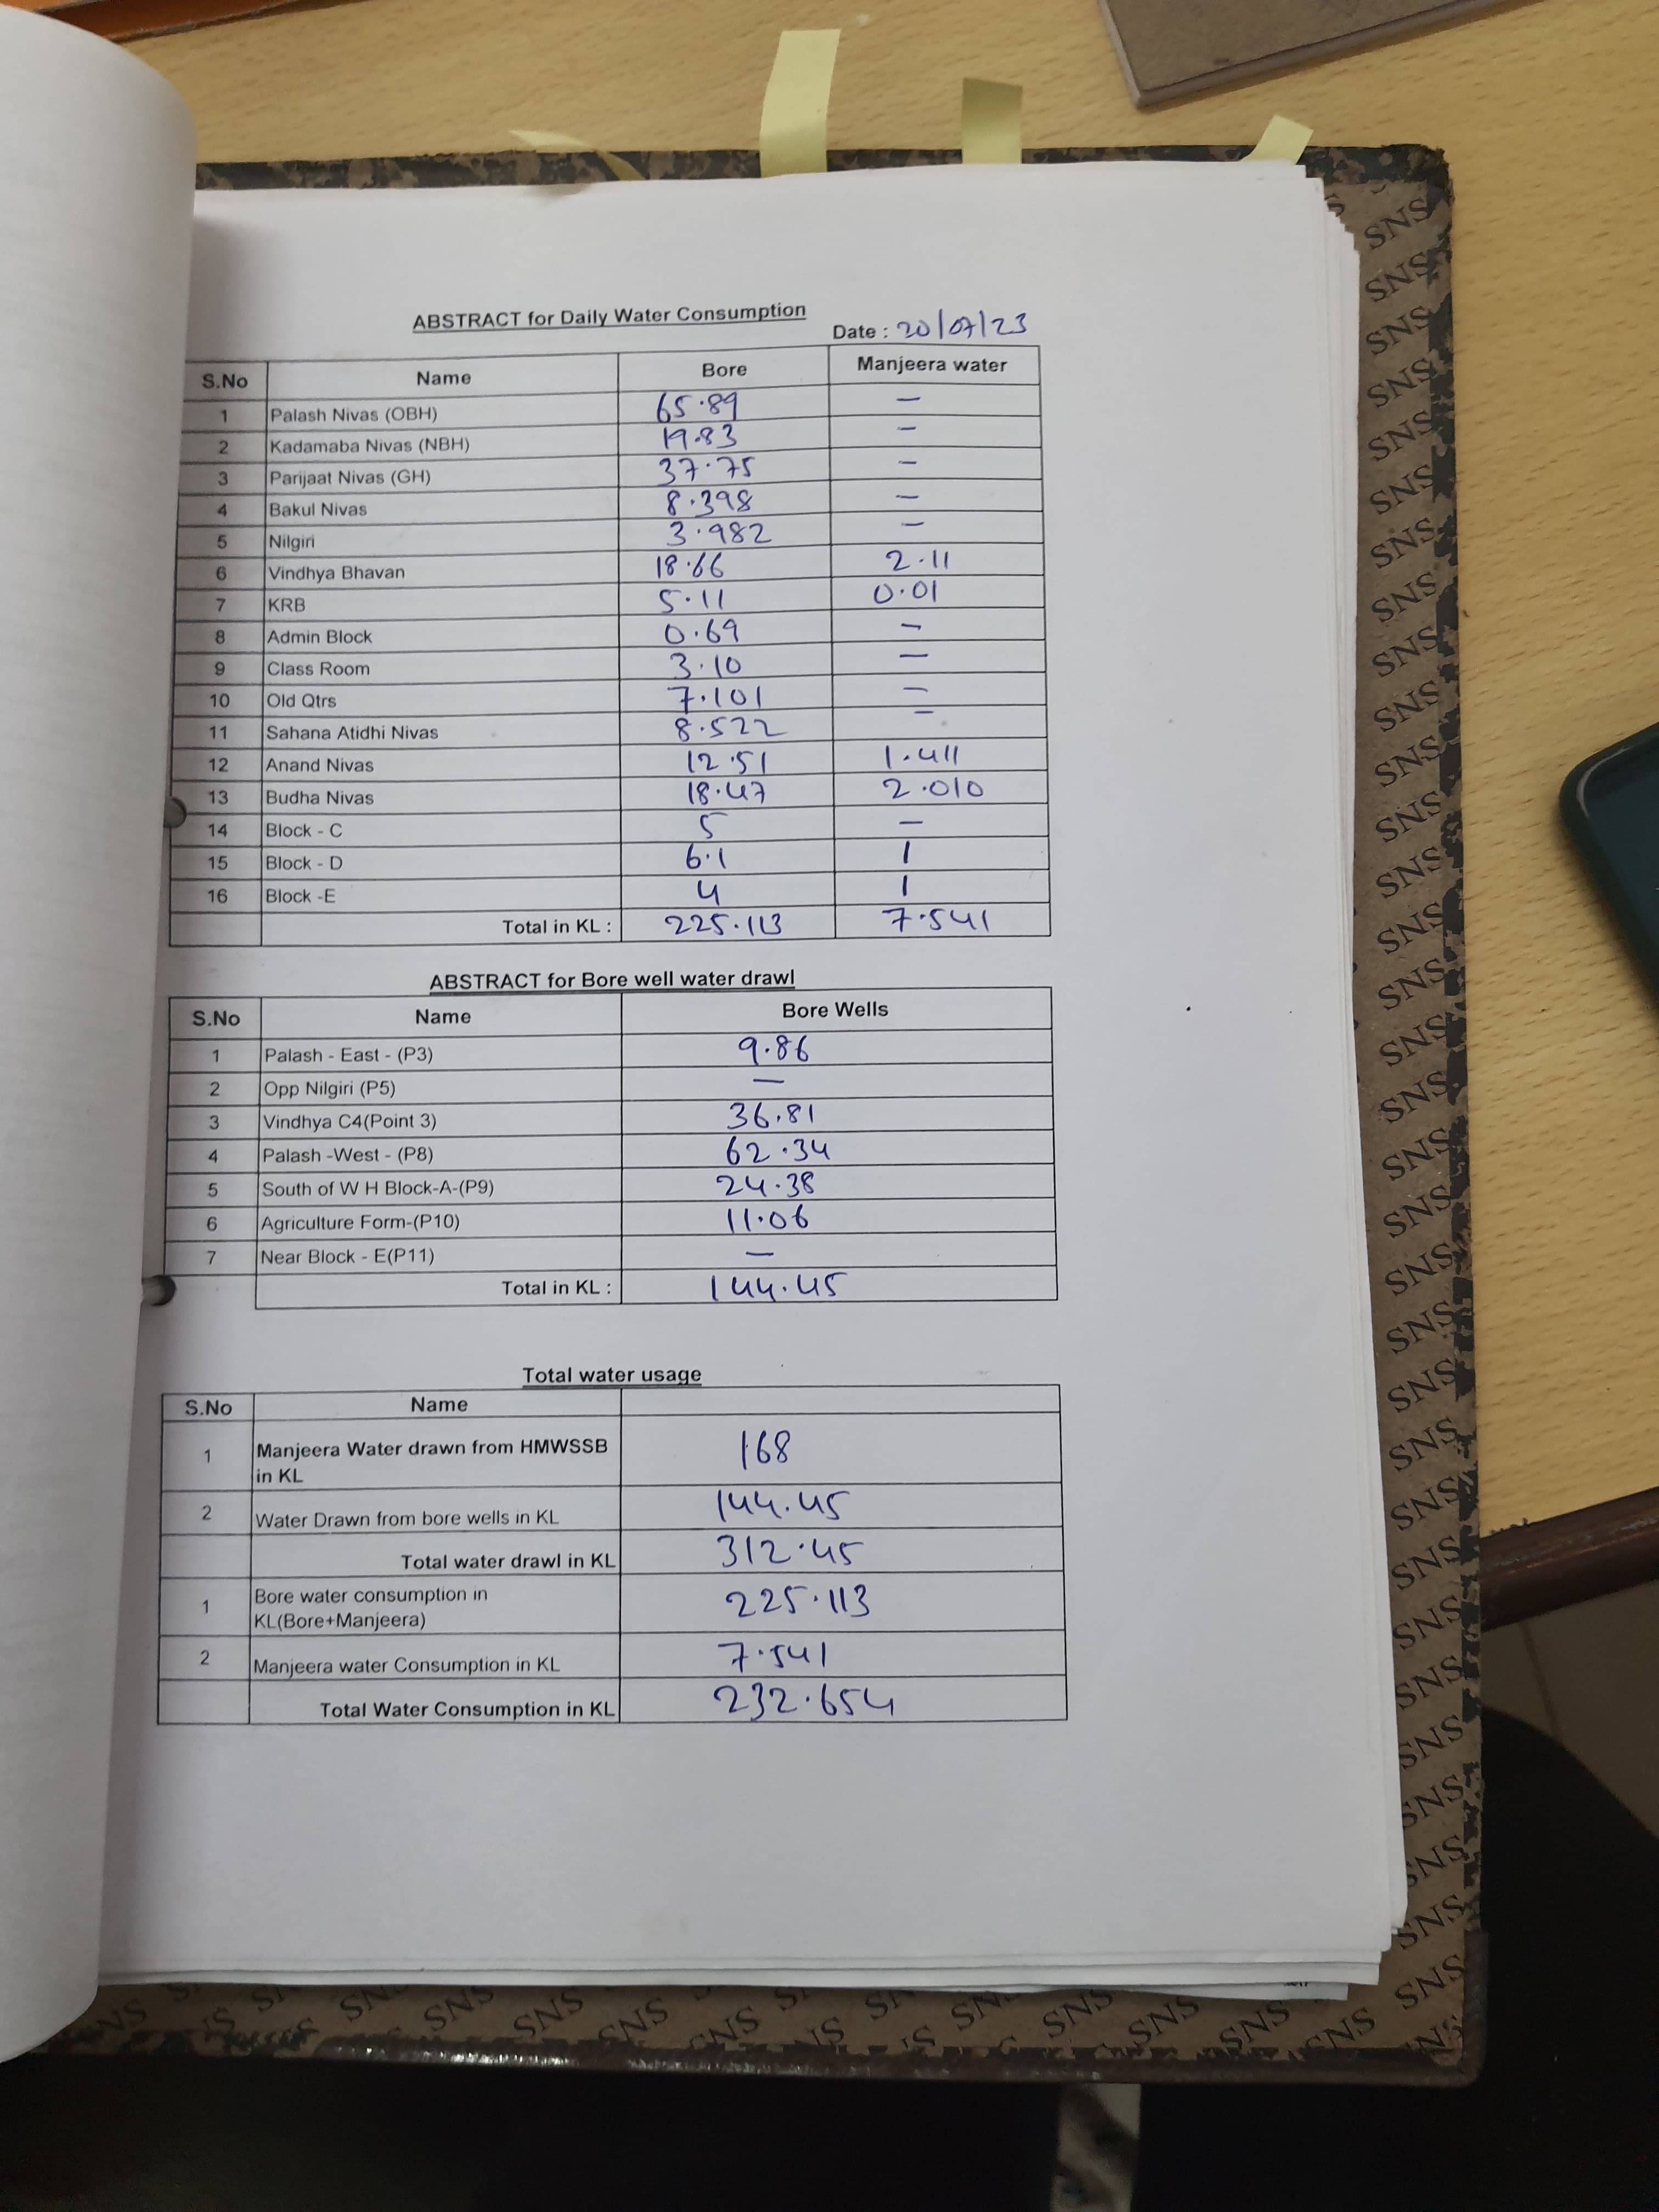 ABSTRACT for Daily Water Consumption
Date : 20/07/23
S.No Name Bore Manjeera water
1 Palash Nivas (OBH) 65.89 —
2 Kadamaba Nivas (NBH) 19.83 —
3 Parijaat Nivas (GH) 37.75 —
4 Bakul Nivas 8.398 —
5 Nilgiri 3.982 —
6 Vindhya Bhavan 18.66 2.11
7 KRB 5.11 0.01
8 Admin Block 0.69 —
9 Class Room 3.10 —
10 Old Qtrs 7.101 —
11 Sahana Atidhi Nivas 8.522 —
12 Anand Nivas 12.51 1.411
13 Budha Nivas 18.47 2.010
14 Block - C 5 —
15 Block - D 6.1 1
16 Block -E 4 1
Total in KL : 225.113 7.541
ABSTRACT for Bore well water drawl
S.No Name Bore Wells
1 Palash - East - (P3) 9.86
2 Opp Nilgiri (P5) —
3 Vindhya C4(Point 3) 36.81
4 Palash -West - (P8) 62.34
5 South of W H Block-A-(P9) 24.38
6 Agriculture Form-(P10) 11.06
7 Near Block - E(P11) —
Total in KL : 144.45
Total water usage
S.No Name
1 Manjeera Water drawn from HMWSSB
in KL 168
2 Water Drawn from bore wells in KL 144.45
Total water drawl in KL 312.45
1 Bore water consumption in
KL(Bore+Manjeera) 225.113
2 Manjeera water Consumption in KL 7.541
Total Water Consumption in KL 232.654
SNS SNS SNS SNS SNS SNS